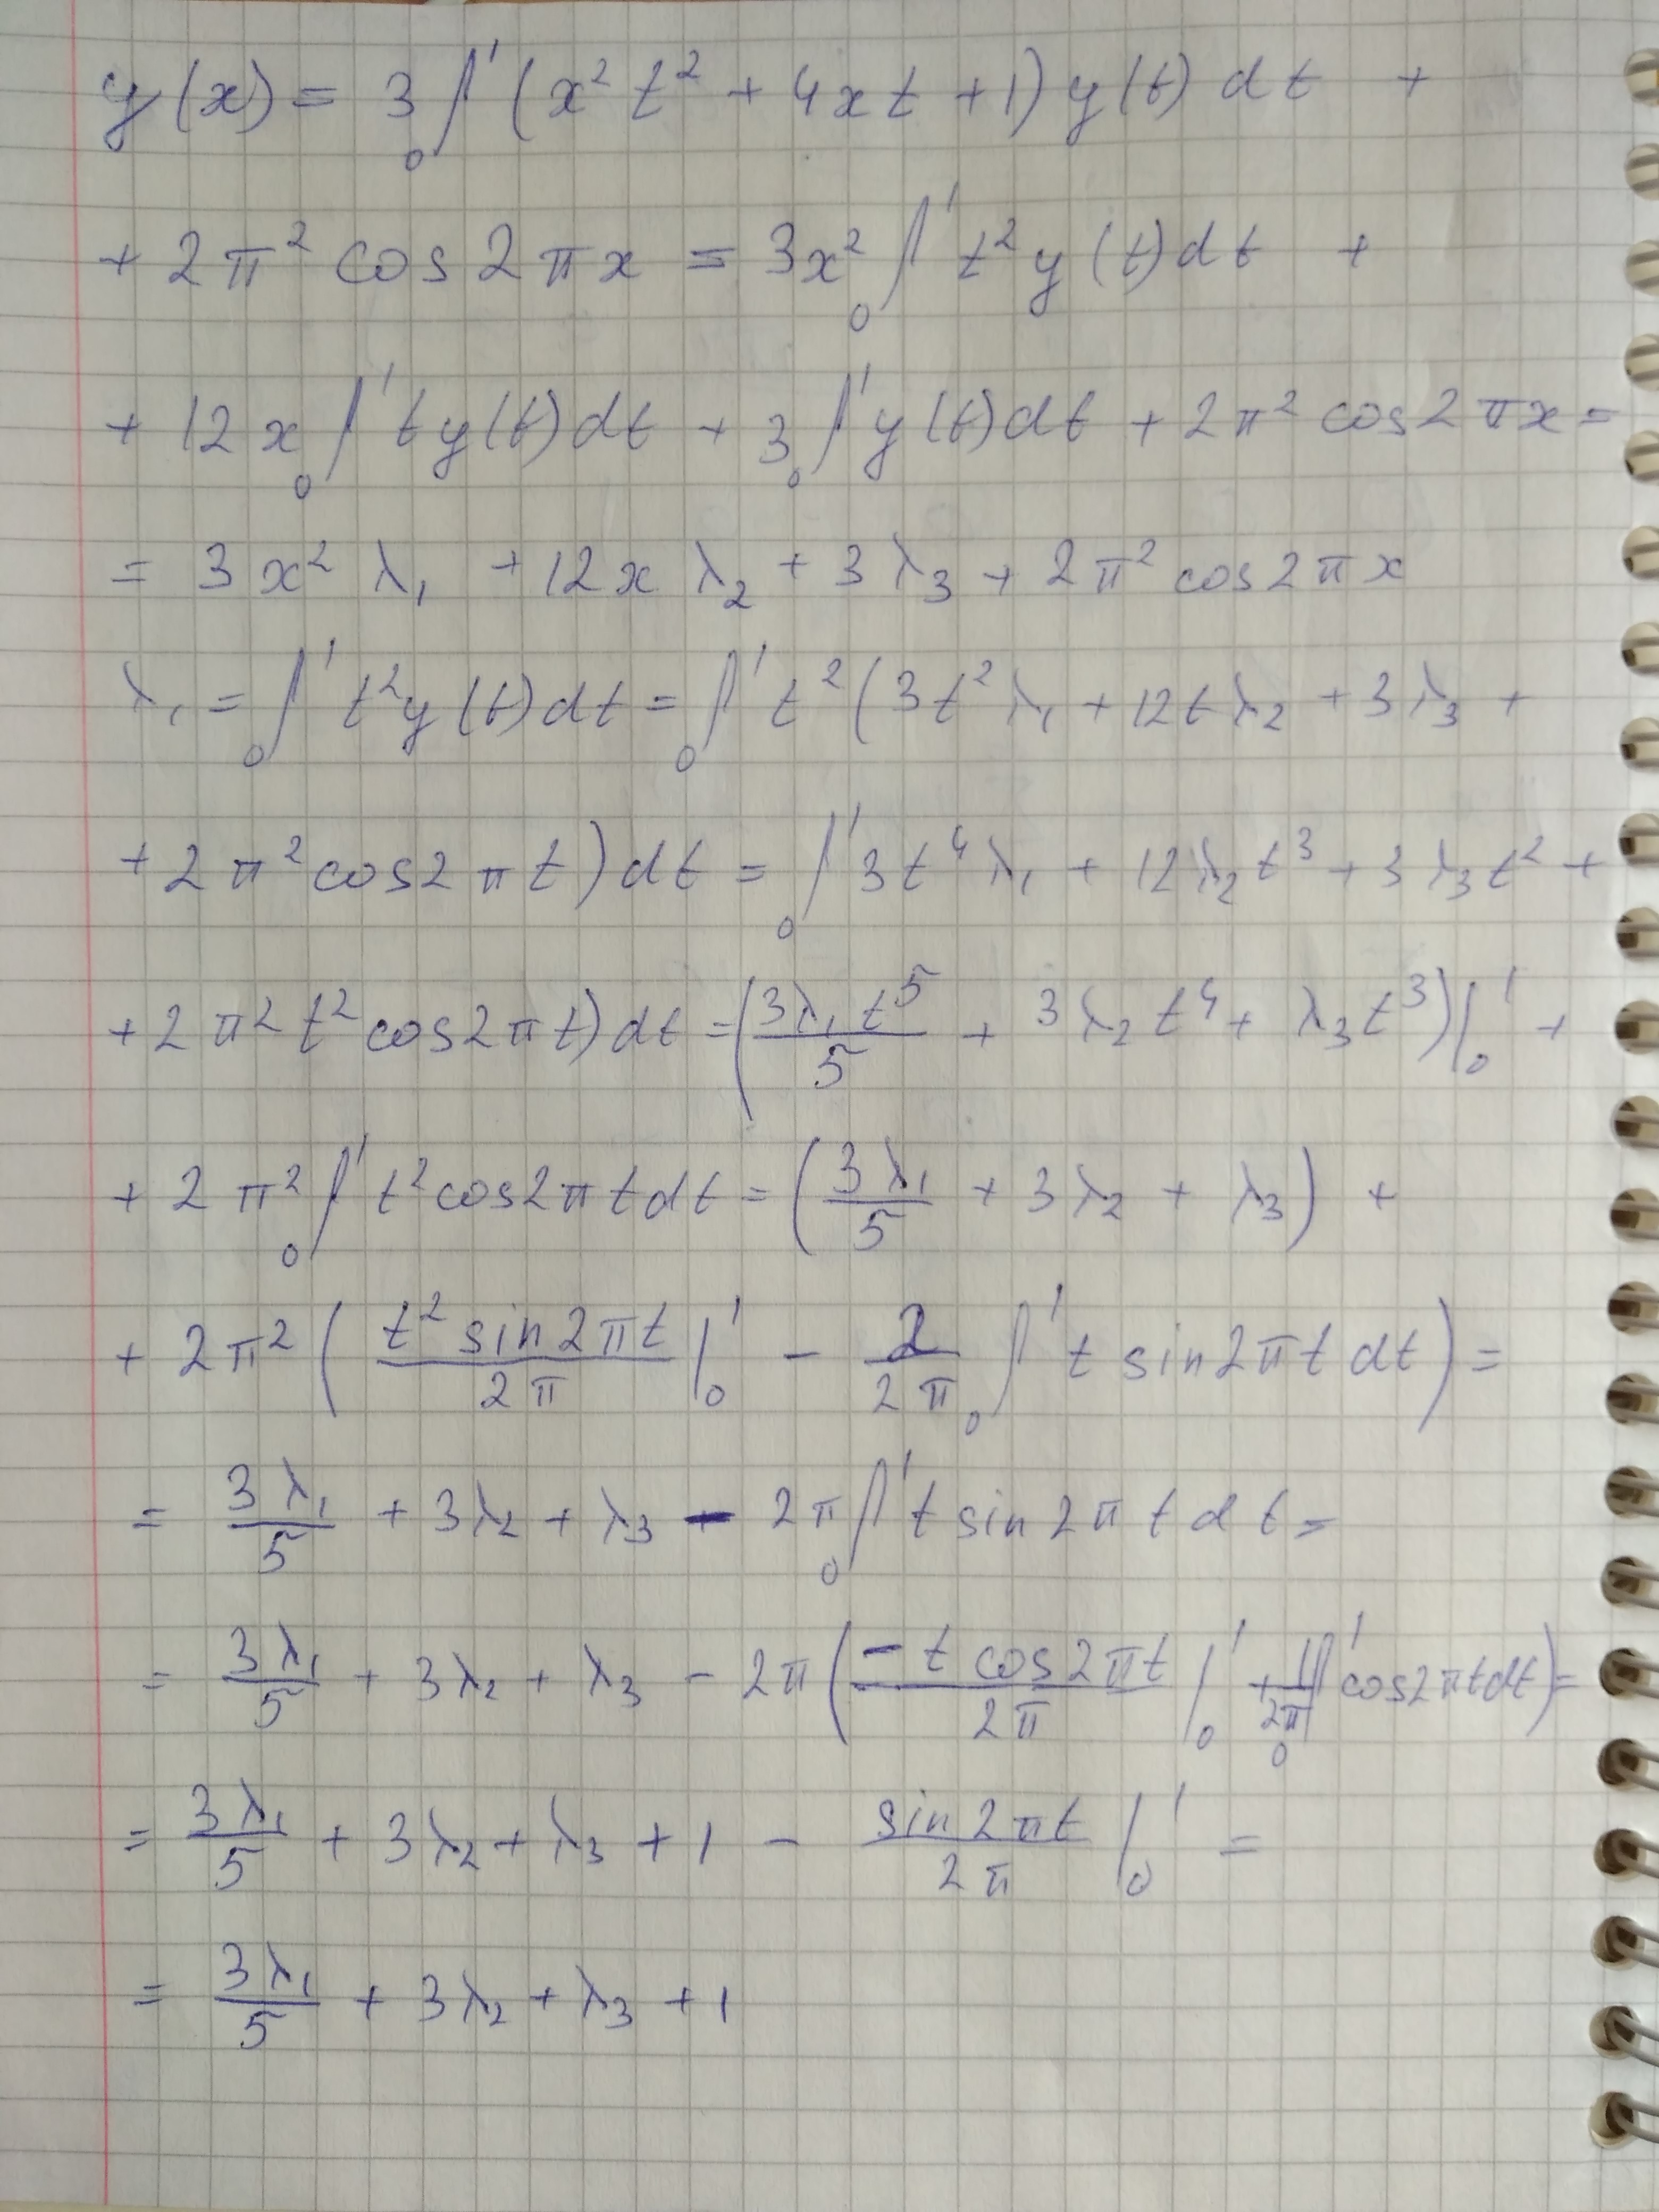 y(x) = 3 ₀∫¹ (x² t² + 4xt + 1) y(t) dt +
+ 2π² cos 2πx = 3x² ₀∫¹ t² y(t)dt +
+ 12x ₀∫¹ ty(t)dt + 3 ₀∫¹ y(t)dt + 2π² cos2πx =
= 3x² λ₁ + 12x λ₂ + 3λ₃ + 2π² cos2πx
λ₁ = ₀∫¹ t²y(t)dt = ₀∫¹ t² (3t² λ₁ + 12tλ₂ + 3λ₃ +
+ 2π² cos2πt) dt = ₀∫¹ 3t⁴λ₁ + 12λ₂t³ + 3λ₃t² +
+ 2π² t² cos2πt) dt = (3λ₁t⁵/5 + 3λ₂t⁴ + λ₃t³)|₀¹ +
+ 2π² ₀∫¹ t² cos2πt dt = (3λ₁/5 + 3λ₂ + λ₃) +
+ 2π² (t² sin2πt/2π |₀¹ - 2/2π ₀∫¹ t sin2πt dt) =
= 3λ₁/5 + 3λ₂ + λ₃ - 2π ₀∫¹ t sin2πt dt =
= 3λ₁/5 + 3λ₂ + λ₃ - 2π (-t cos2πt/2π |₀¹ + 1/2π ₀∫¹ cos2πtdt) =
= 3λ₁/5 + 3λ₂ + λ₃ + 1 - sin2πt/2π |₀¹ =
= 3λ₁/5 + 3λ₂ + λ₃ + 1